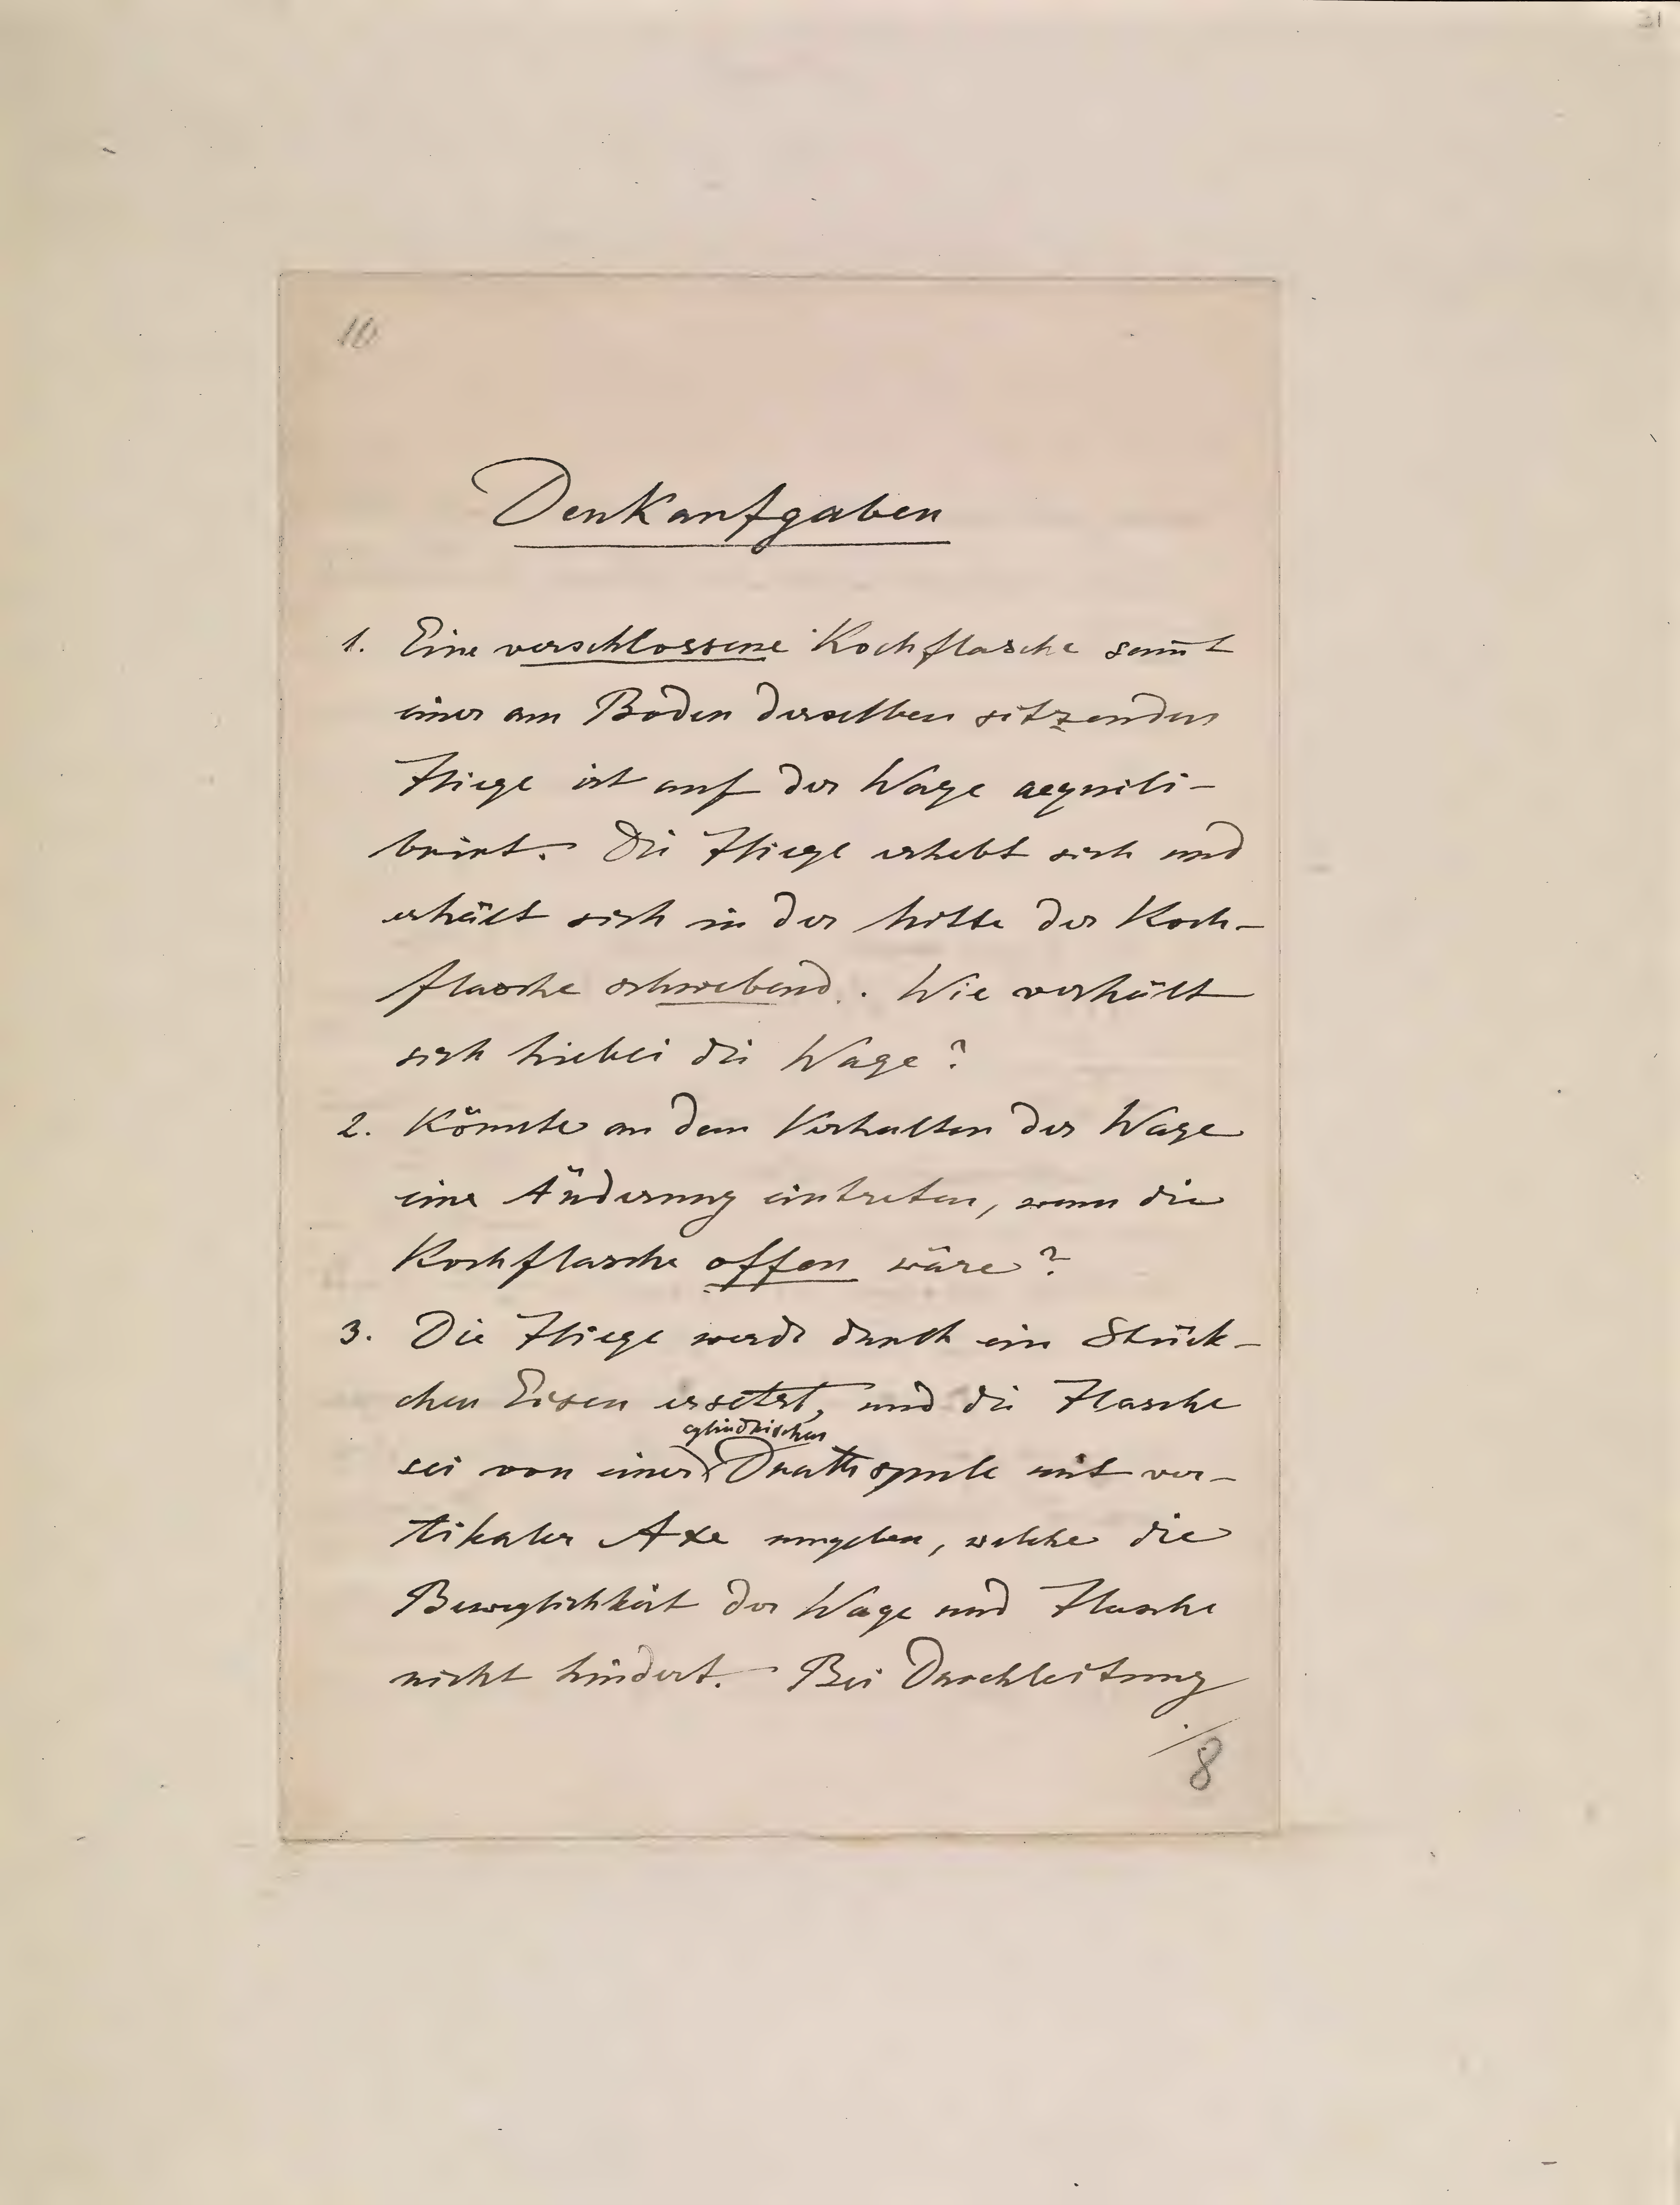 31
10
Denkaufgaben
1. Eine verschlossene Kochflasche sam̅t
einer am Boden derselben sitzenden
Fliege ist auf der Wage aequili-
brirt. Die Fliege erhebt sich und
erhält sich in der Mitte der Koch-
flasche schwebend. Wie verhält
sich hiebei die Wage?
2. Könnte an dem Verhalten der Wage
eine Änderung eintreten, wenn die
Kochflasche offen wäre?
3. Die Fliege werde durch ein Stück-
chen Eisen ersetzt, und die Flasche
cylindrischen
sei von einer Drathspule mit ver-
tikaler Axe umgeben, welche die
Beweglichkeit der Wage und Flasche
nicht hindert. Bei Durchleitung
./.
8